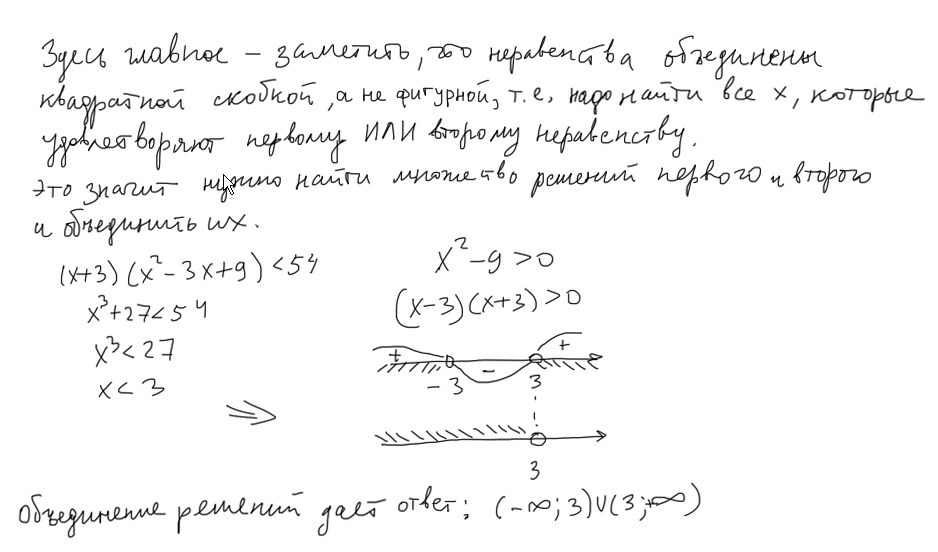 Здесь главное – заметить, что неравенства объединены
квадратной скобкой, а не фигурной, т.е. надо найти все x, которые
удовлетворяют первому ИЛИ второму неравенству.
Это значит нужно найти множество решений первого и второго
и объединить их.
(x+3)(x²-3x+9)<54
x³+27<54
x³<27
x<3
x²-9>0
(x-3)(x+3)>0
+ - +
-3 3
⇒
3
Объединение решений дает ответ: (-∞;3)∪(3;+∞)